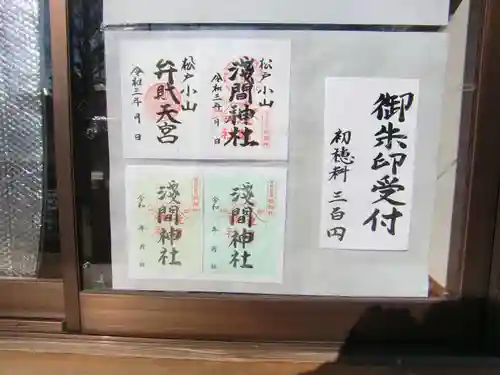 松戸小山
浅間神社
令和三年 月 日
松戸小山
弁財天宮
令和三年 月 日
浅間神社
令和 年 月 日
浅間神社
令和 年 月 日
御朱印受付
初穂料 三百円